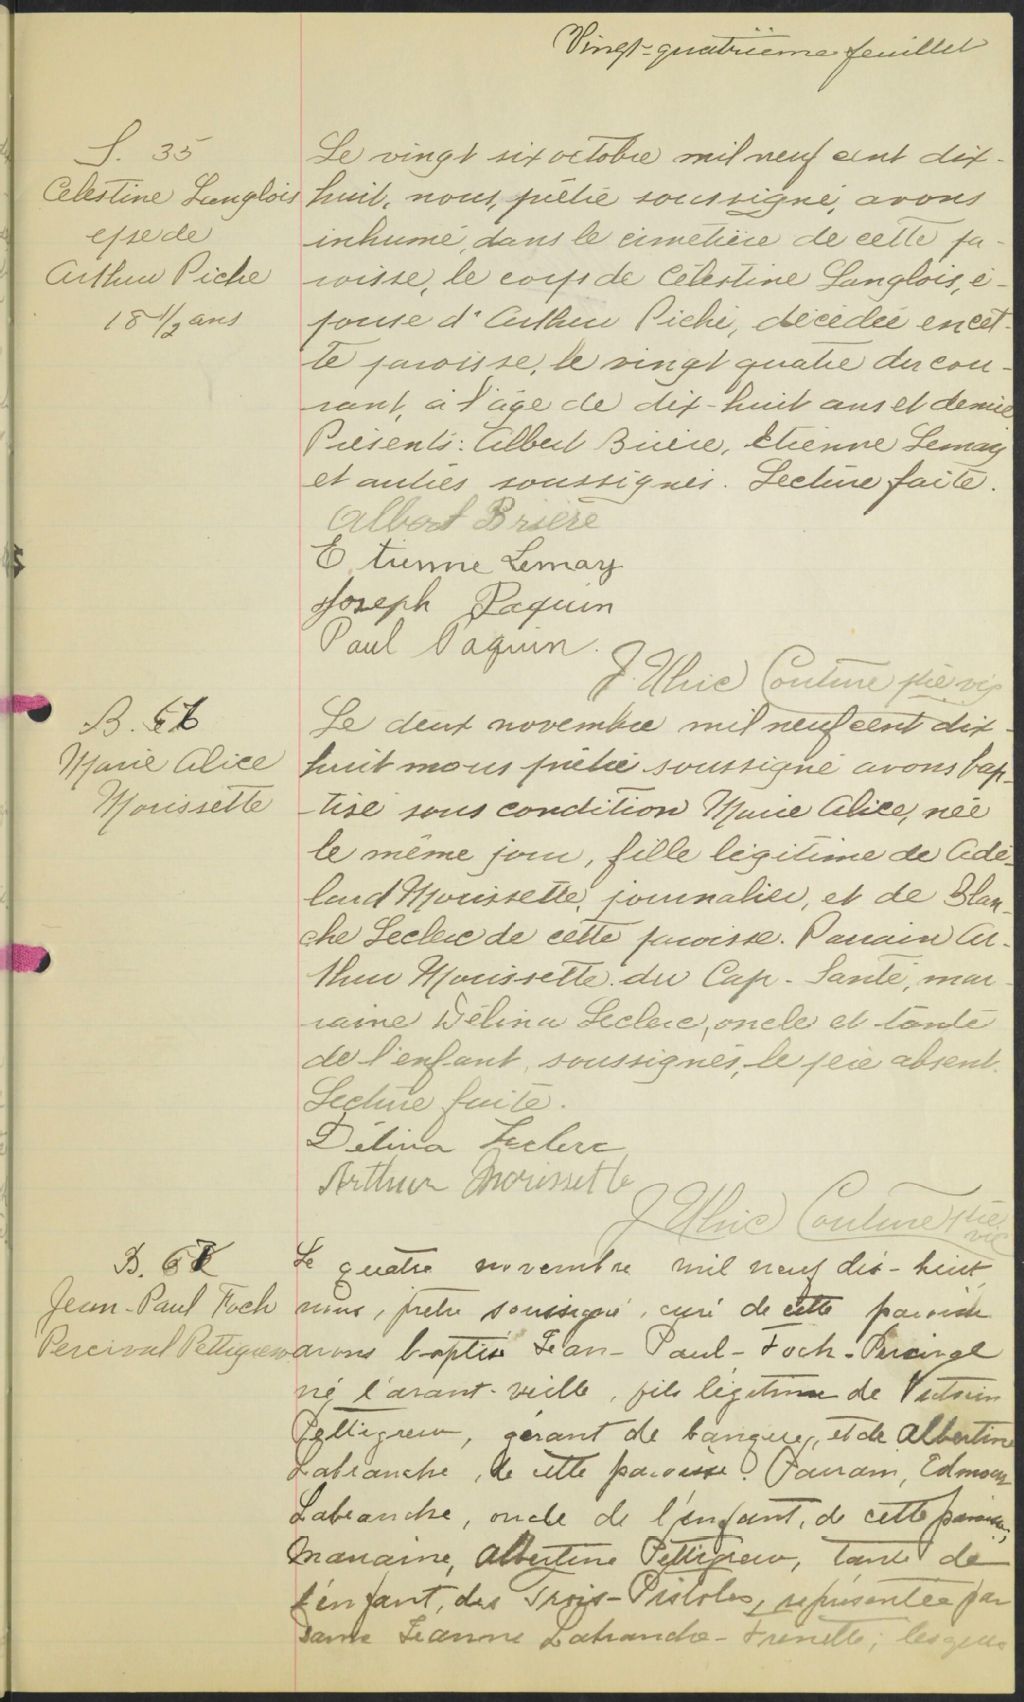 Vingt-quatrième feuillet
S. 35
Celestine Langlois
epse de
Arthur Piche
18 1/2 ans
Le vingt six octobre mil neuf cent dix-
huit, nous, prêtre soussigné, avons
inhumé, dans le cimetière de cette pa-
roisse, le corps de Célestine Langlois, é-
pouse d'Arthur Piché, décédée en cet-
te paroisse, le vingt quatre du cou-
rant, à l'âge de dix-huit ans et demie
Présents: Albert Brière, Etienne Lemay
et autres soussignés. Lecture faite.
Albert Brière
Etienne Lemay
Joseph Paquin
Paul Paquin.
J. Ulric Couture ptre vic
B.
Marie Alice
Morissette
Le deux novembre mil neuf cent dix-
huit nous prêtre soussigné avons bap-
tisé sous condition Marie Alice, née
le même jour, fille légitime de Adé-
lard Morissette, journalier, et de Blan-
che Leclerc de cette paroisse. Parrain Ar-
thur Morissette du Cap-Santé, mar-
raine Délina Leclerc, oncle et tante
de l'enfant, soussignés, le père absent.
Lecture faite.
Délina Leclerc
Arthur Morissette
J Ulric Couture ptre vic
B.
Jean-Paul Foch
Percival Pettigrew
Le quatre novembre mil neuf dix-huit
nous, prêtre soussigné, curé de cette paroisse
avons baptisé Jean-Paul-Foch-Percival
né l'avant-veille, fils légitime de
Pettigrew, gérant de banque, et de Albertine
Labranche, de cette paroisse. Parrain, Edmond
Labranche, oncle de l'enfant, de cette paroisse,
Marraine, Albertine Pettigrew, tante de
l'enfant, des Trois-Pistoles, représentée par
Dame Jeanne Labranche-Frenette; lesquels